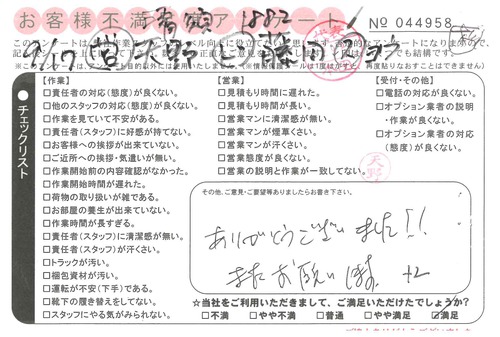 お客様不満足アンケート № 044958
チェックリスト
【作業】
□責任者の対応(態度)が良くない。
□他のスタッフの対応(態度)が良くない。
□作業を見ていて不安がある。
□責任者(スタッフ)に好感が持てない。
□お客様への挨拶が出来ていない。
□ご近所への挨拶・気遣いが無い。
□作業開始前の内容確認がなかった。
□作業開始時間が遅れた。
□荷物の取り扱いが雑である。
□お部屋の養生が出来ていない。
□作業時間が長すぎる。
□責任者(スタッフ)に清潔感が無い。
□責任者(スタッフ)が汗くさい。
□トラックが汚い。
□梱包資材が汚い。
□運転が不安(下手)である。
□靴下の履き替えをしてない。
□スタッフにやる気がみられない。
【営業】
□見積もり時間に遅れた。
□見積もり時間が長い。
□営業マンに清潔感が無い。
□営業マンが煙草くさい。
□営業マンが汗くさい。
□営業態度が良くない。
□営業の説明と作業が一致してない。
【受付・その他】
□電話の対応が良くない。
□オプション業者の説明
・作業が良くない。
□オプション業者の対応
(態度)が良くない。
天野
その他、ご意見・ご要望等ありましたらお書き下さい。
ありがとうございました!!
またお願いします。
☆当社をご利用いただきまして、ご満足いただけたでしょうか?
□不満 □やや不満 □普通 □やや満足 ☑満足